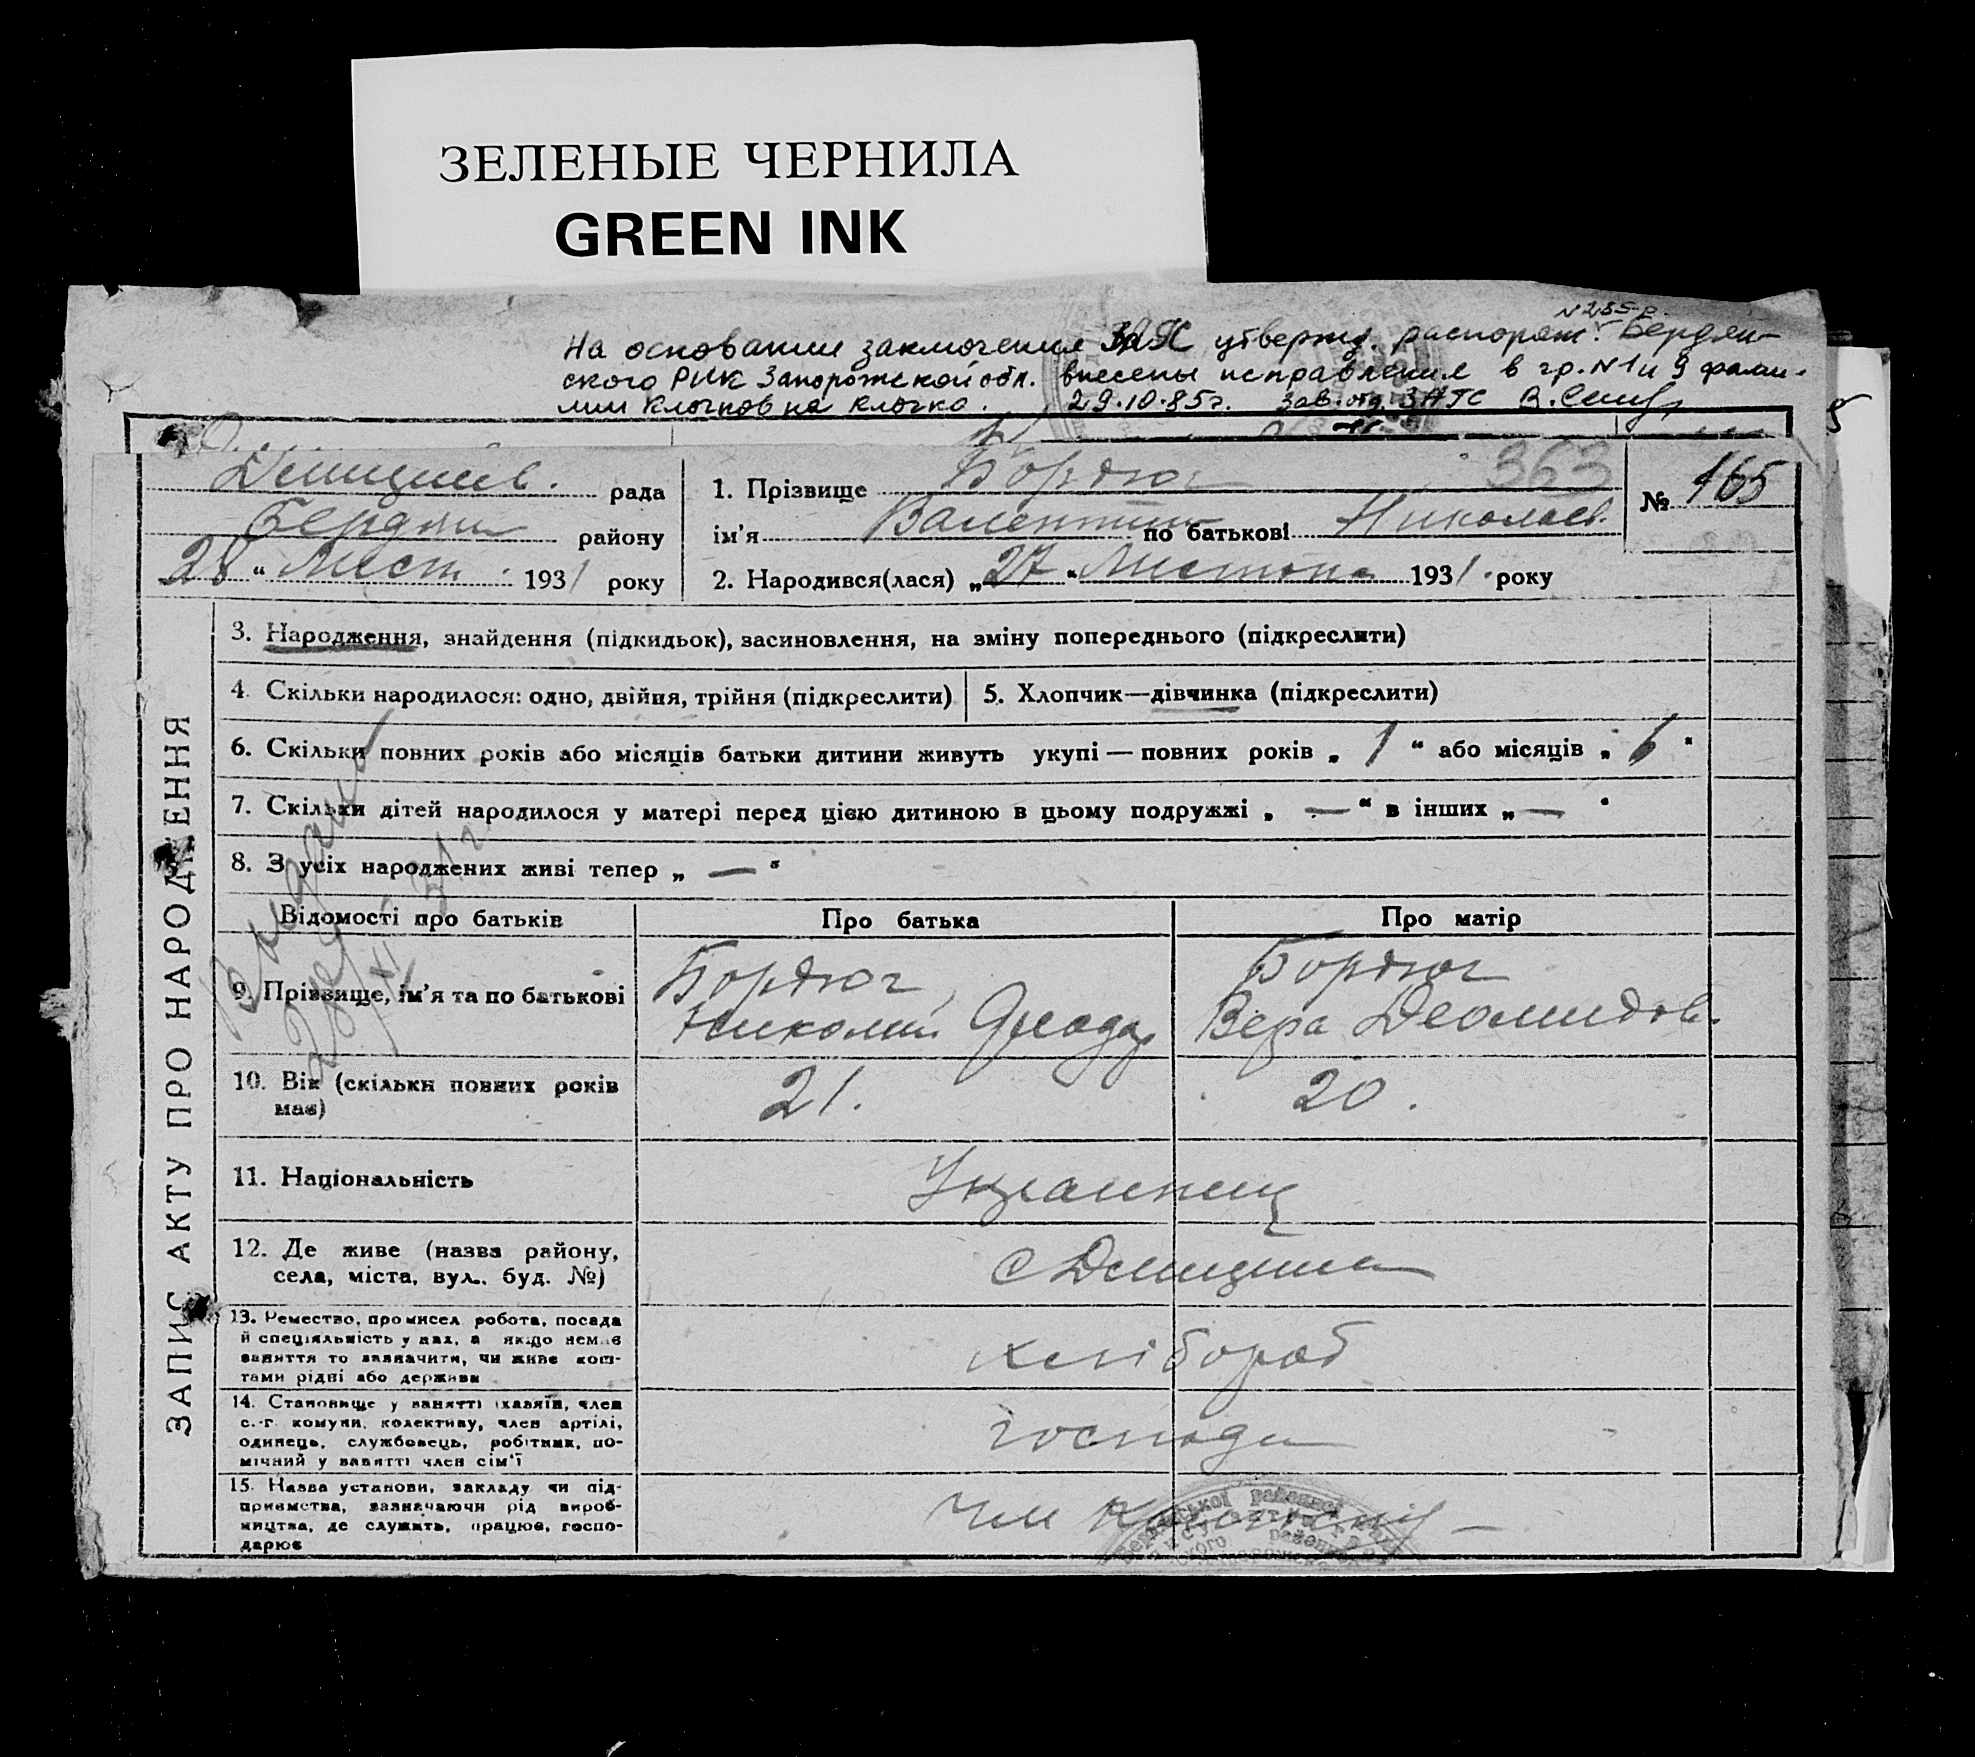 ЗЕЛЕНЫЕ ЧЕРНИЛА
GREEN INK
N 285-р.
На основании заключения ЗАГС утвержд. распоряж. Бердян-
ского РИК Запорожской обл. внесены исправления в гр. N 1 и 9 фами-
лии Клочков на Клочко. 29.10.85г. Зав. отд. ЗАГС
363
рада 1. Прізвище Бордюг № 165
Бердян району ім'я Валентин по батькові Николаев.
28 “ Лист. 1931 року 2. Народився(лася) „27“ Листопа 1931. року
ЗАПИС АКТУ ПРО НАРОДЖЕННЯ
3. Народження, знайдення (підкидьок), засиновлення, на зміну попереднього (підкреслити)
4. Скільки народилося: одно, двійня, трійня (підкреслити) 5. Хлопчик—дівчинка (підкреслити)
6. Скільки повних років або місяців батьки дитини живуть укупі — повних років „ 1 “ або місяців „ 6 “
7. Скільки дітей народилося у матері перед цією дитиною в цьому подружжі „ — “ в інших „ — “
8. З усіх народжених живі тепер „ — “
Відомості про батьків Про батька Про матір
9. Прізвище, ім'я та по батькові
Бордюг
Николай
Бордюг
Вера Деомидов.
10. Вік (скільки повних років
має)
21. 20.
11. Національність Українці
12. Де живе (назва району,
села, міста, вул., буд. №)
13. Ремество, промисел, робота, посада
й спеціяльність у них, а якщо немає
заняття то зазначити, чи живе кош-
тами рідні або держави
хлібороб
14. Становище у занятті (хазяїн, член
с.-г. комуни, колективу, член артілі,
одинець, службовець, робітник, по-
мічний у занятті член сім'ї
15. Назва установи, закладу чи під-
приємства, зазначаючи рід вироб-
ництва, де служить, працює, госпо-
дарює